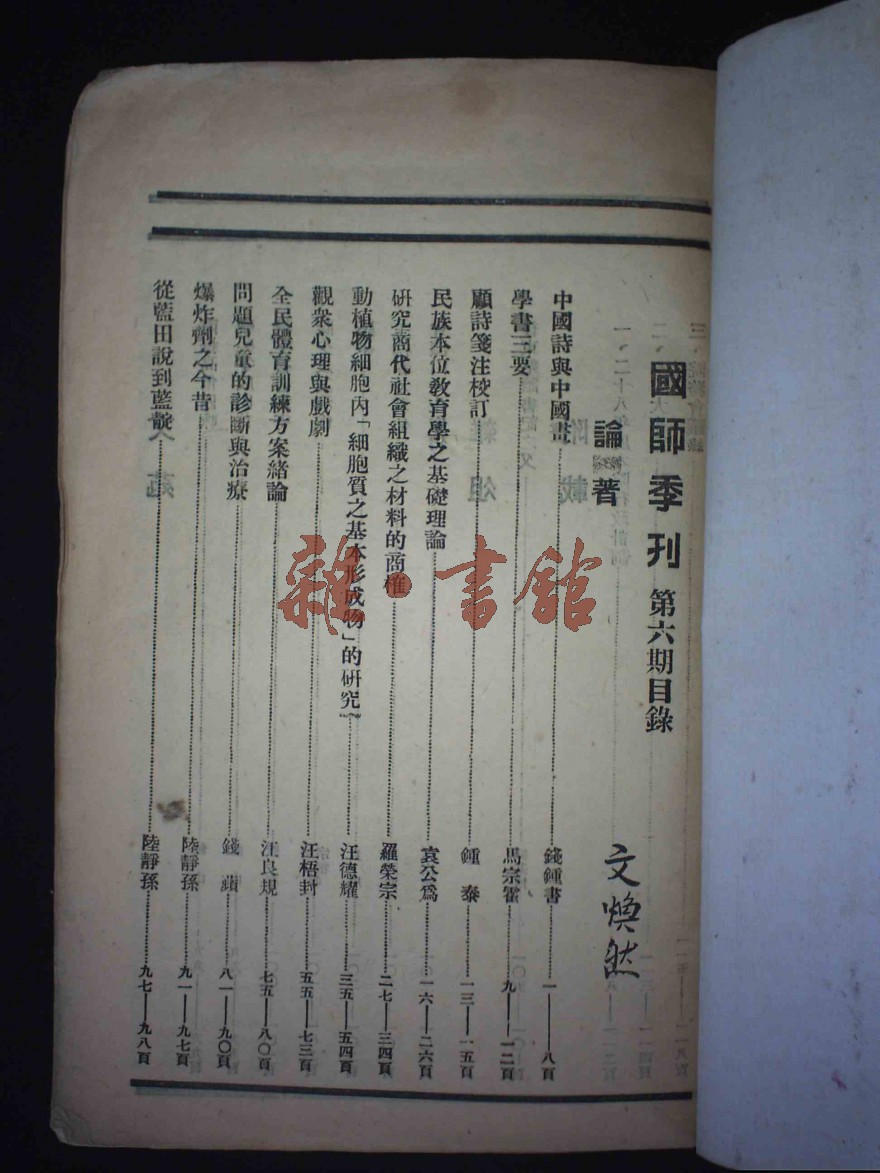 國師季刊 第六期目錄
文煥然
論著
中國詩與中國畫 錢鍾書 一——八頁
學書三要 馬宗霍 九——一二頁
顧詩箋注校訂 鍾泰 一三——一五頁
民族本位教育學之基礎理論 袁公為 一六——二六頁
研究商代社會組織之材料的商榷 羅榮宗 二七——三四頁
動植物細胞內「細胞質之基本形成物」的研究 汪德耀 三五——五四頁
觀衆心理與戲劇 汪梧封 五五——七三頁
全民體育訓練方案緒論 汪良規 七五——八〇頁
問題兒童的診斷與治療 錢蘋 八一——九〇頁
爆炸劑之今昔 陸靜孫 九一——九七頁
從藍田說到藍靛 陸靜孫 九七——九八頁
雜·書館